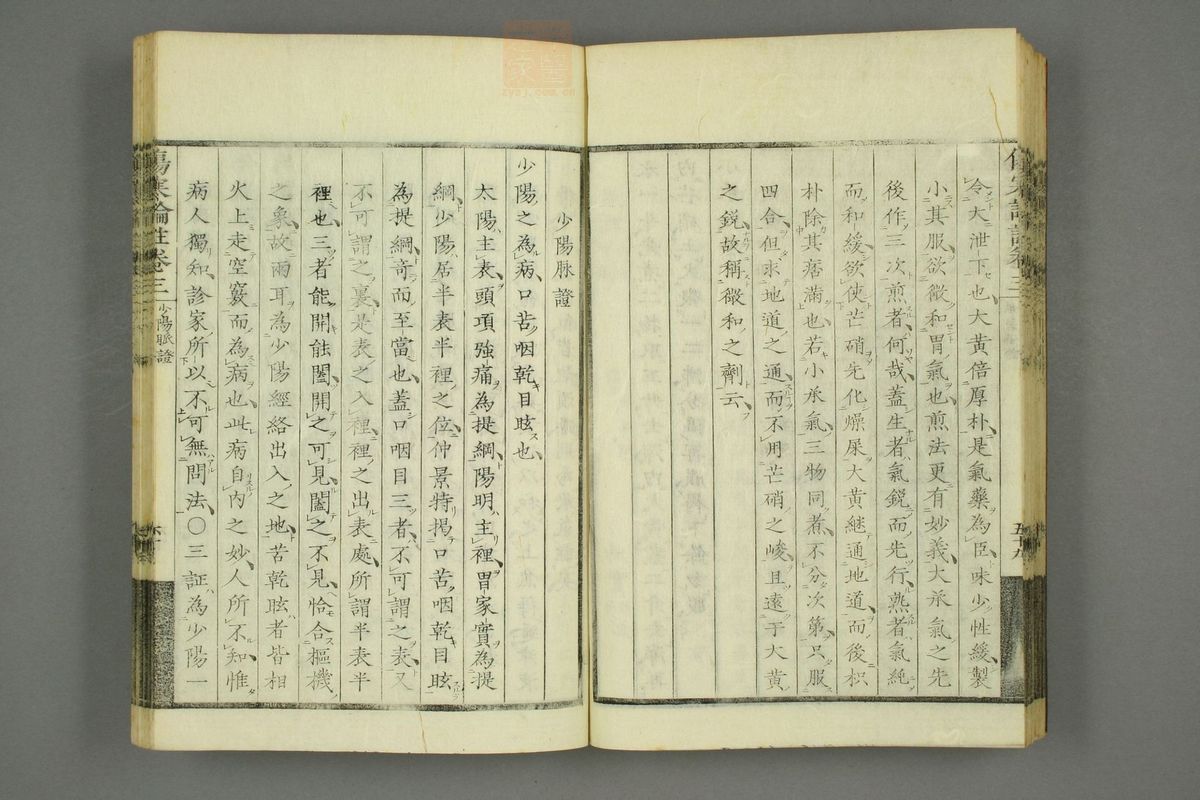 令大泄下也大黃倍厚朴是氣藥為臣味少性緩製
小其服欲微和胃氣也煎法更有妙義大承氣之先
後作三次煎者何哉蓋生者氣銳而先行熟者氣純
而和緩欲使芒硝先化燥屎大黃継通地道而後枳
朴除其痞滿也若小承氣三物同煮不分次第只服
四合但求地道之通而不用芒硝之峻且遠于大黃
之銳故稱微和之劑云
少陽脉證
少陽之為病口苦咽乾目眩也
太陽主表頭項強痛為提綱陽明主裡胃家實為提
綱少陽居半表半裡之位仲景特揭口苦咽乾目眩
為提綱奇而至當也蓋口咽目三者不可謂之表又
不可謂之裏是表之入裡裡之出表處所謂半表半
裡也三者能開能闔開之可見闔之不見恰合樞機
之象故兩耳為少陽經絡出入之地苦乾眩者皆相
火上走空竅而為病也此病自內之妙人所不知惟
病人獨知診家所以不可無問法〇三証為少陽一
傷寒論註卷三 少陽脈證